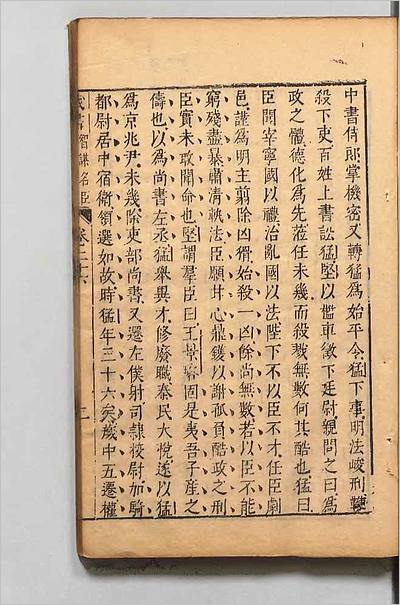 中書侍郎掌機密又轉猛爲始平令猛下車明法峻刑鞭
殺下吏百姓上書訟猛堅以檻車徵下廷尉親問之曰爲
政之體德化爲先蒞任未幾而殺戮無數何其酷也猛曰
臣聞宰寧國以禮治亂國以法陛下不以臣不才任臣劇
邑謹爲明主翦除凶猾始殺一凶餘尚無數若以臣不能
窮殘盡暴肅清軌法臣願甘心鼎鑊以謝孤負酷政之刑
臣實未敢聞命也堅謂羣臣曰王景畧固是夷吾子產之
儔也以爲尚書左丞猛舉異才修廢職秦民大悅遂以猛
爲京兆尹未幾除吏部尚書又遷左僕射司隸校尉加騎
都尉居中宿衛領選如故時猛年三十六矣歲中五遷權
書智謀名臣 卷二十六 三